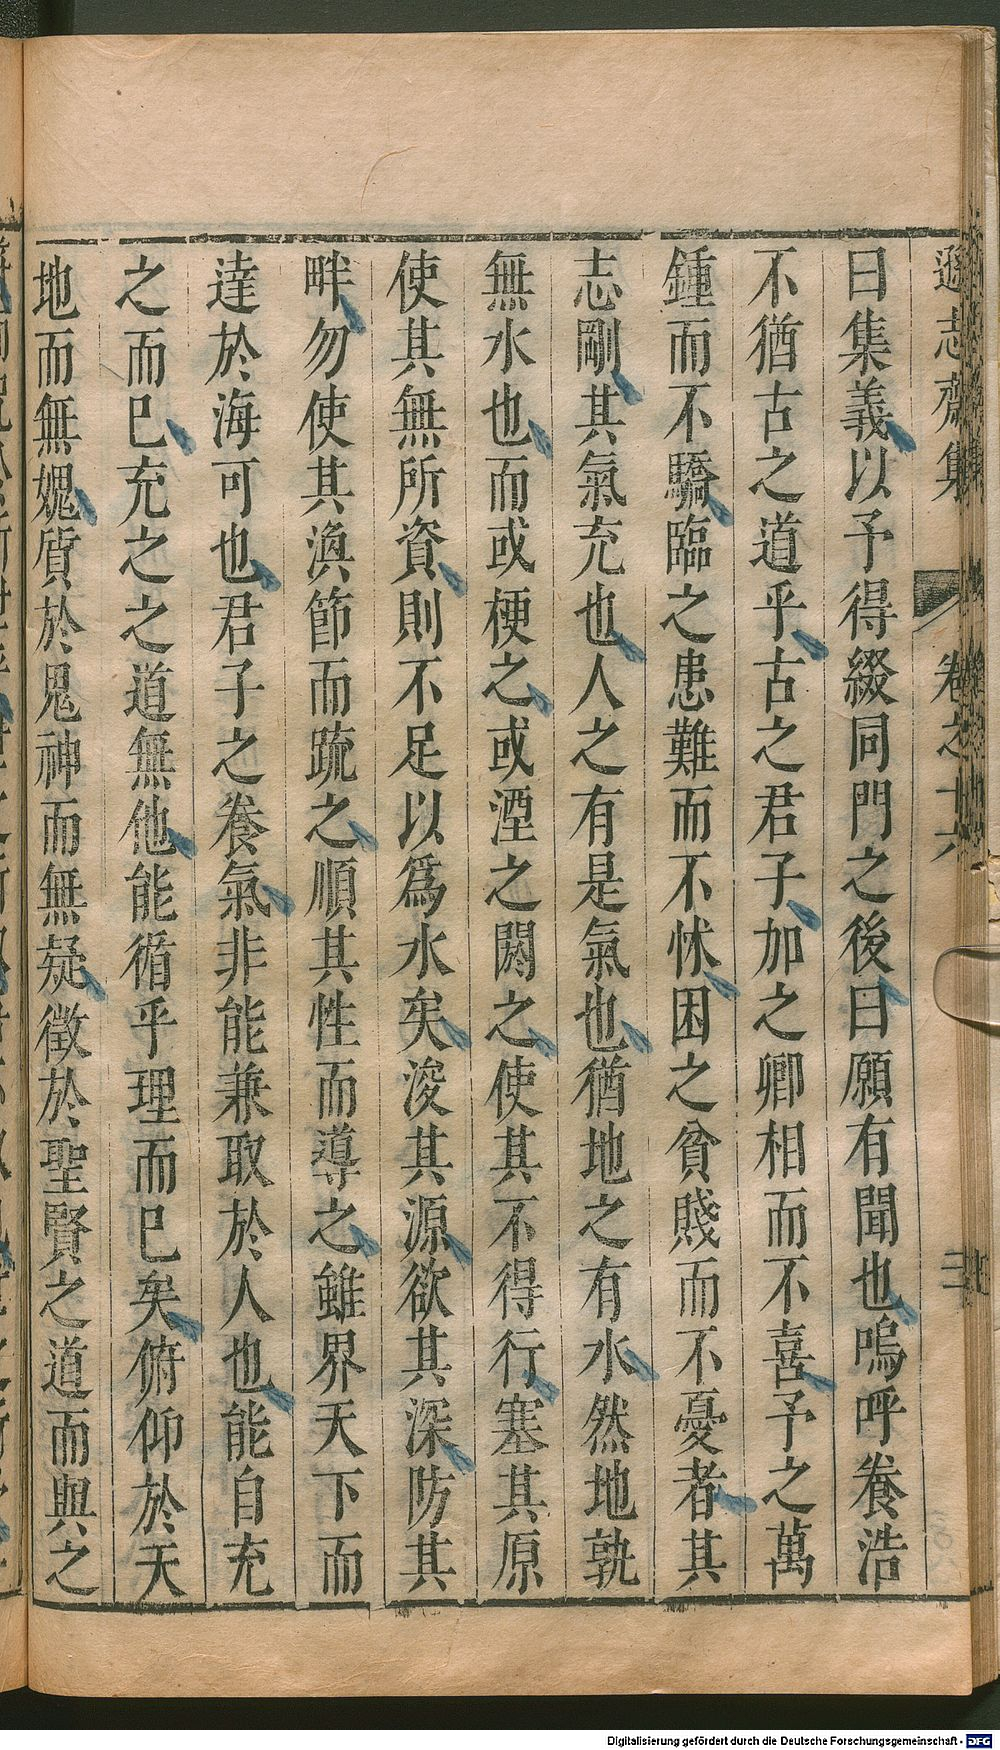 遜志齋集 卷之十六
曰集義以予得綴同門之後曰願有聞也嗚呼養浩
不猶古之道乎古之君子加之卿相而不喜予之萬
鍾而不驕臨之患難而不怵困之貧賤而不憂者其
志剛其氣充也人之有是氣也猶地之有水然地孰
無水也而或梗之或湮之閼之使其不得行塞其原
使其無所資則不足以爲水矣浚其源欲其深防其
畔勿使其渙節而疏之順其性而導之雖界天下而
達於海可也君子之養氣非能兼取於人也能自充
之而已充之之道無他能循乎理而已矣俯仰於天
地而無媿質於鬼神而無疑徵於聖賢之道而與之
Digitalisierung gefördert durch die Deutsche Forschungsgemeinschaft - DFG